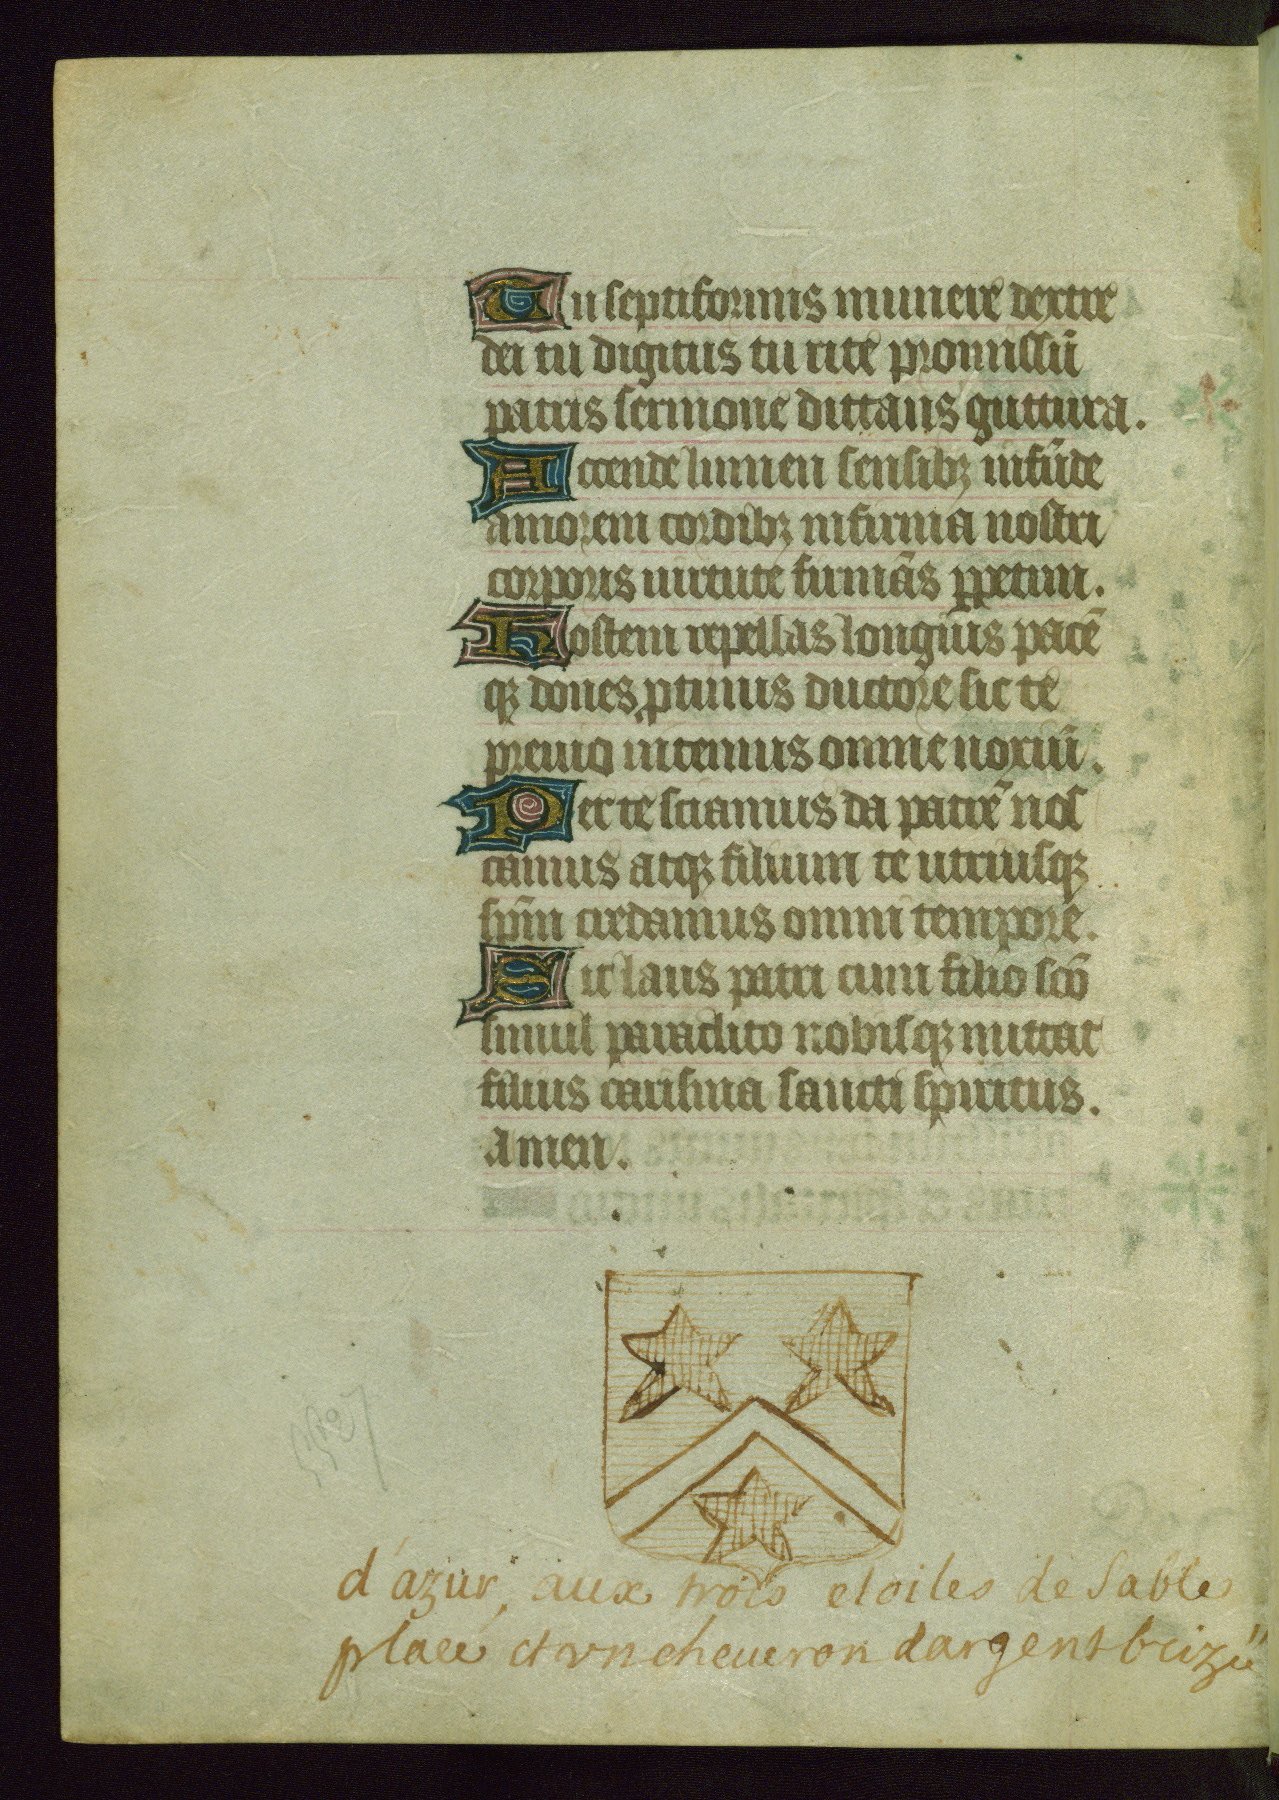 Tu septiformis munere dextre
dei tu digitus tu rite promissū
patris sermone dittans guttura.
Accende lumen sensibꝫ infūde
amorem cordibꝫ infirma nostri
corporis uirtute firmās ꝑpetim.
Hostem repellas longius pacē
qꝫ dones ꝓtinus ductore sic te
preuio uitemus omne noxiū.
Per te sciamus da patrē nos
camus atqꝫ filium te utriusqꝫ
spm̄ credamus omni tempore.
Sit laus patri cum filio scō
simul paraclito nobisqꝫ mittat
filius carisma sancti spiritus.
Amen.
d'azur, aux trois etoiles de sable
placé et vn cheueron dargent brizü